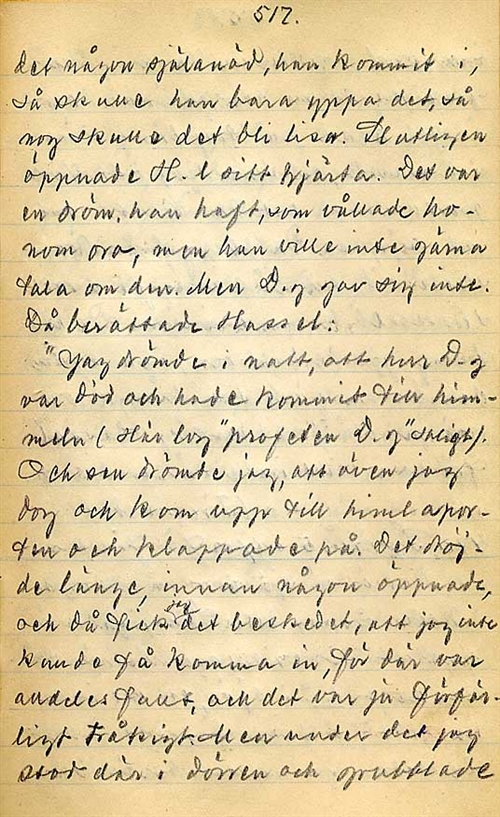 517.
det någon själanöd, han kommit i,
så skulle han bara yppa det, så
nog skulle det bli lisa. Slutligen
öppnade H-l sitt hjärta. Det var
en dröm, han haft, som vållade ho-
nom oro, men han ville inte gärna
tala om den. Men D-g gav sig inte.
Då berättade Hassel:
"Jag drömde i natt, att herr D-g
var död och hade kommit till him-
meln (Här log "profeten D-g" saligt).
Och sen drömde jag, att även jag
dog och kom upp till himlapor-
ten och klappade på. Det dröj-
de länge, innan någon öppnade,
och då fick jag det beskedet, att jag inte
kunde få komma in, för där var
alldeles fullt, och det var ju förfär-
ligt tråkigt. Men under det jag
stod där i dörren och grubblade